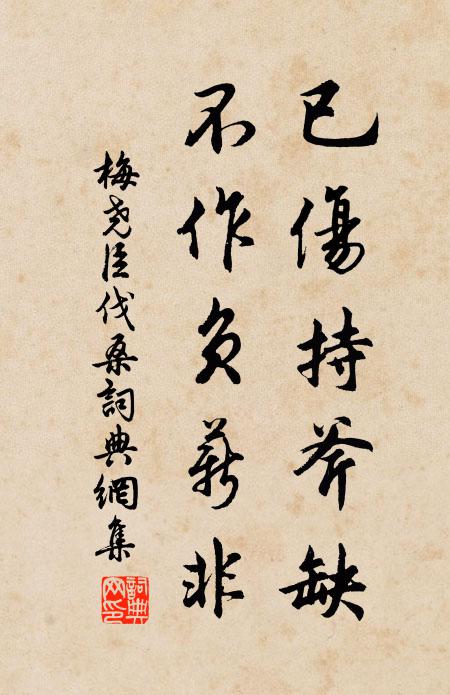 已傷持斧缺
不作負薪非
梅堯臣伐桑詞典網集
詞典網印